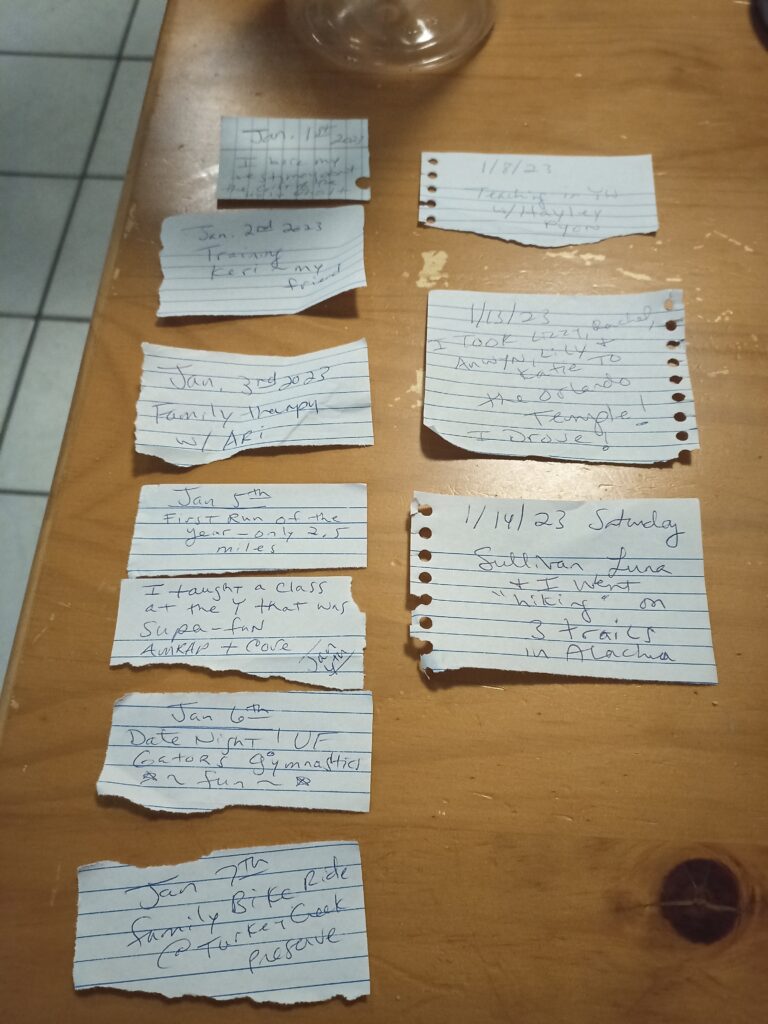 Jan. 1st
2023
I have my
Jan. 2nd 2023
Training
Keri ~ my
friend
Jan, 3rd 2023
Family therapy
w/ ARi
Jan 5th
First Run of the
year - only 2.5
miles
I taught a class
at the Y that was
Supa-fun
AMRAP + Core
Jan
4th
Jan 6th
Date Night! UF
Gators gymnastics
~ fun ~
Jan 7th
family Bike Ride
@ Turkey Creek
Preserve
1/8/23
Teaching in YW
w/ Hayley
Pyon
1/13/23
I TOOK Lizzy, Rachel,
Anwyn, Lily +
Katie To
the Orlando
Temple!
I Drove!
1/14/23 Saturday
Sullivan Luna
+ I went
"hiking" on
3 trails
in Alachua